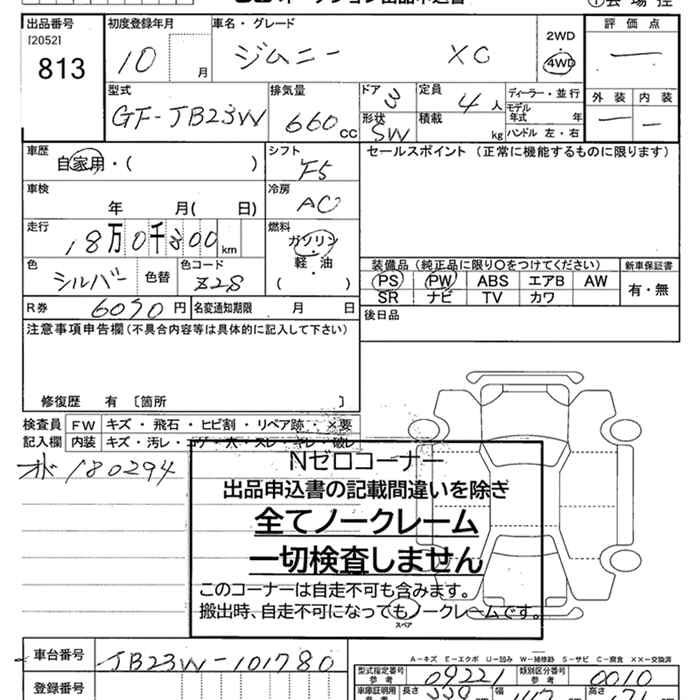 オークション出品申込書 ①会場控
出品番号 初度登録年月 車名・グレード 評価点
120521
813 10 月 ジムニー XC 2WD 4WD 一
型式 排気量 ドア 3 定員 4人 ディーラー・並行 外装 内装
モデル年式 年
GF-JB23W 660cc 形状 SW 積載 kg ハンドル 左・右 一 一
車歴 シフト セールスポイント（正常に機能するものに限ります）
自家用・（ ） F5
車検 冷房
年 月（ 日） AC
走行 燃料
18万0千800km ガソリン
軽・油
色 色コード 装備品（純正品に限り○をつけてください） 新車保証書
シルバー 色替 Z28 （ ） PS PW ABS エアB AW 有・無
SR ナビ TV カワ
R券 6090円 名変通知期限 月 日 後日品
注意事項申告欄（不具合内容等は具体的に記入して下さい）
修復歴 有〔箇所 〕
検査員 FW キズ・飛石・ヒビ割・リペア跡・×要
記入欄 内装 キズ・汚レ・コゲ・穴・スレ・キレ・破レ
180294
Nゼロコーナー
出品申込書の記載間違いを除き
全てノークレーム
一切検査しません
このコーナーは自走不可も含みます。
搬出時、自走不可になってもノークレームです。
スペア
A-キズ E-エクボ U-凹み W-補修跡 S-サビ C-腐食 XX-交換済
車台番号 JB23W-101780 型式指定番号 参考 09221 類別区分番号 参考 0010
登録番号 車庫証明用 参考 長さ 幅 高さ